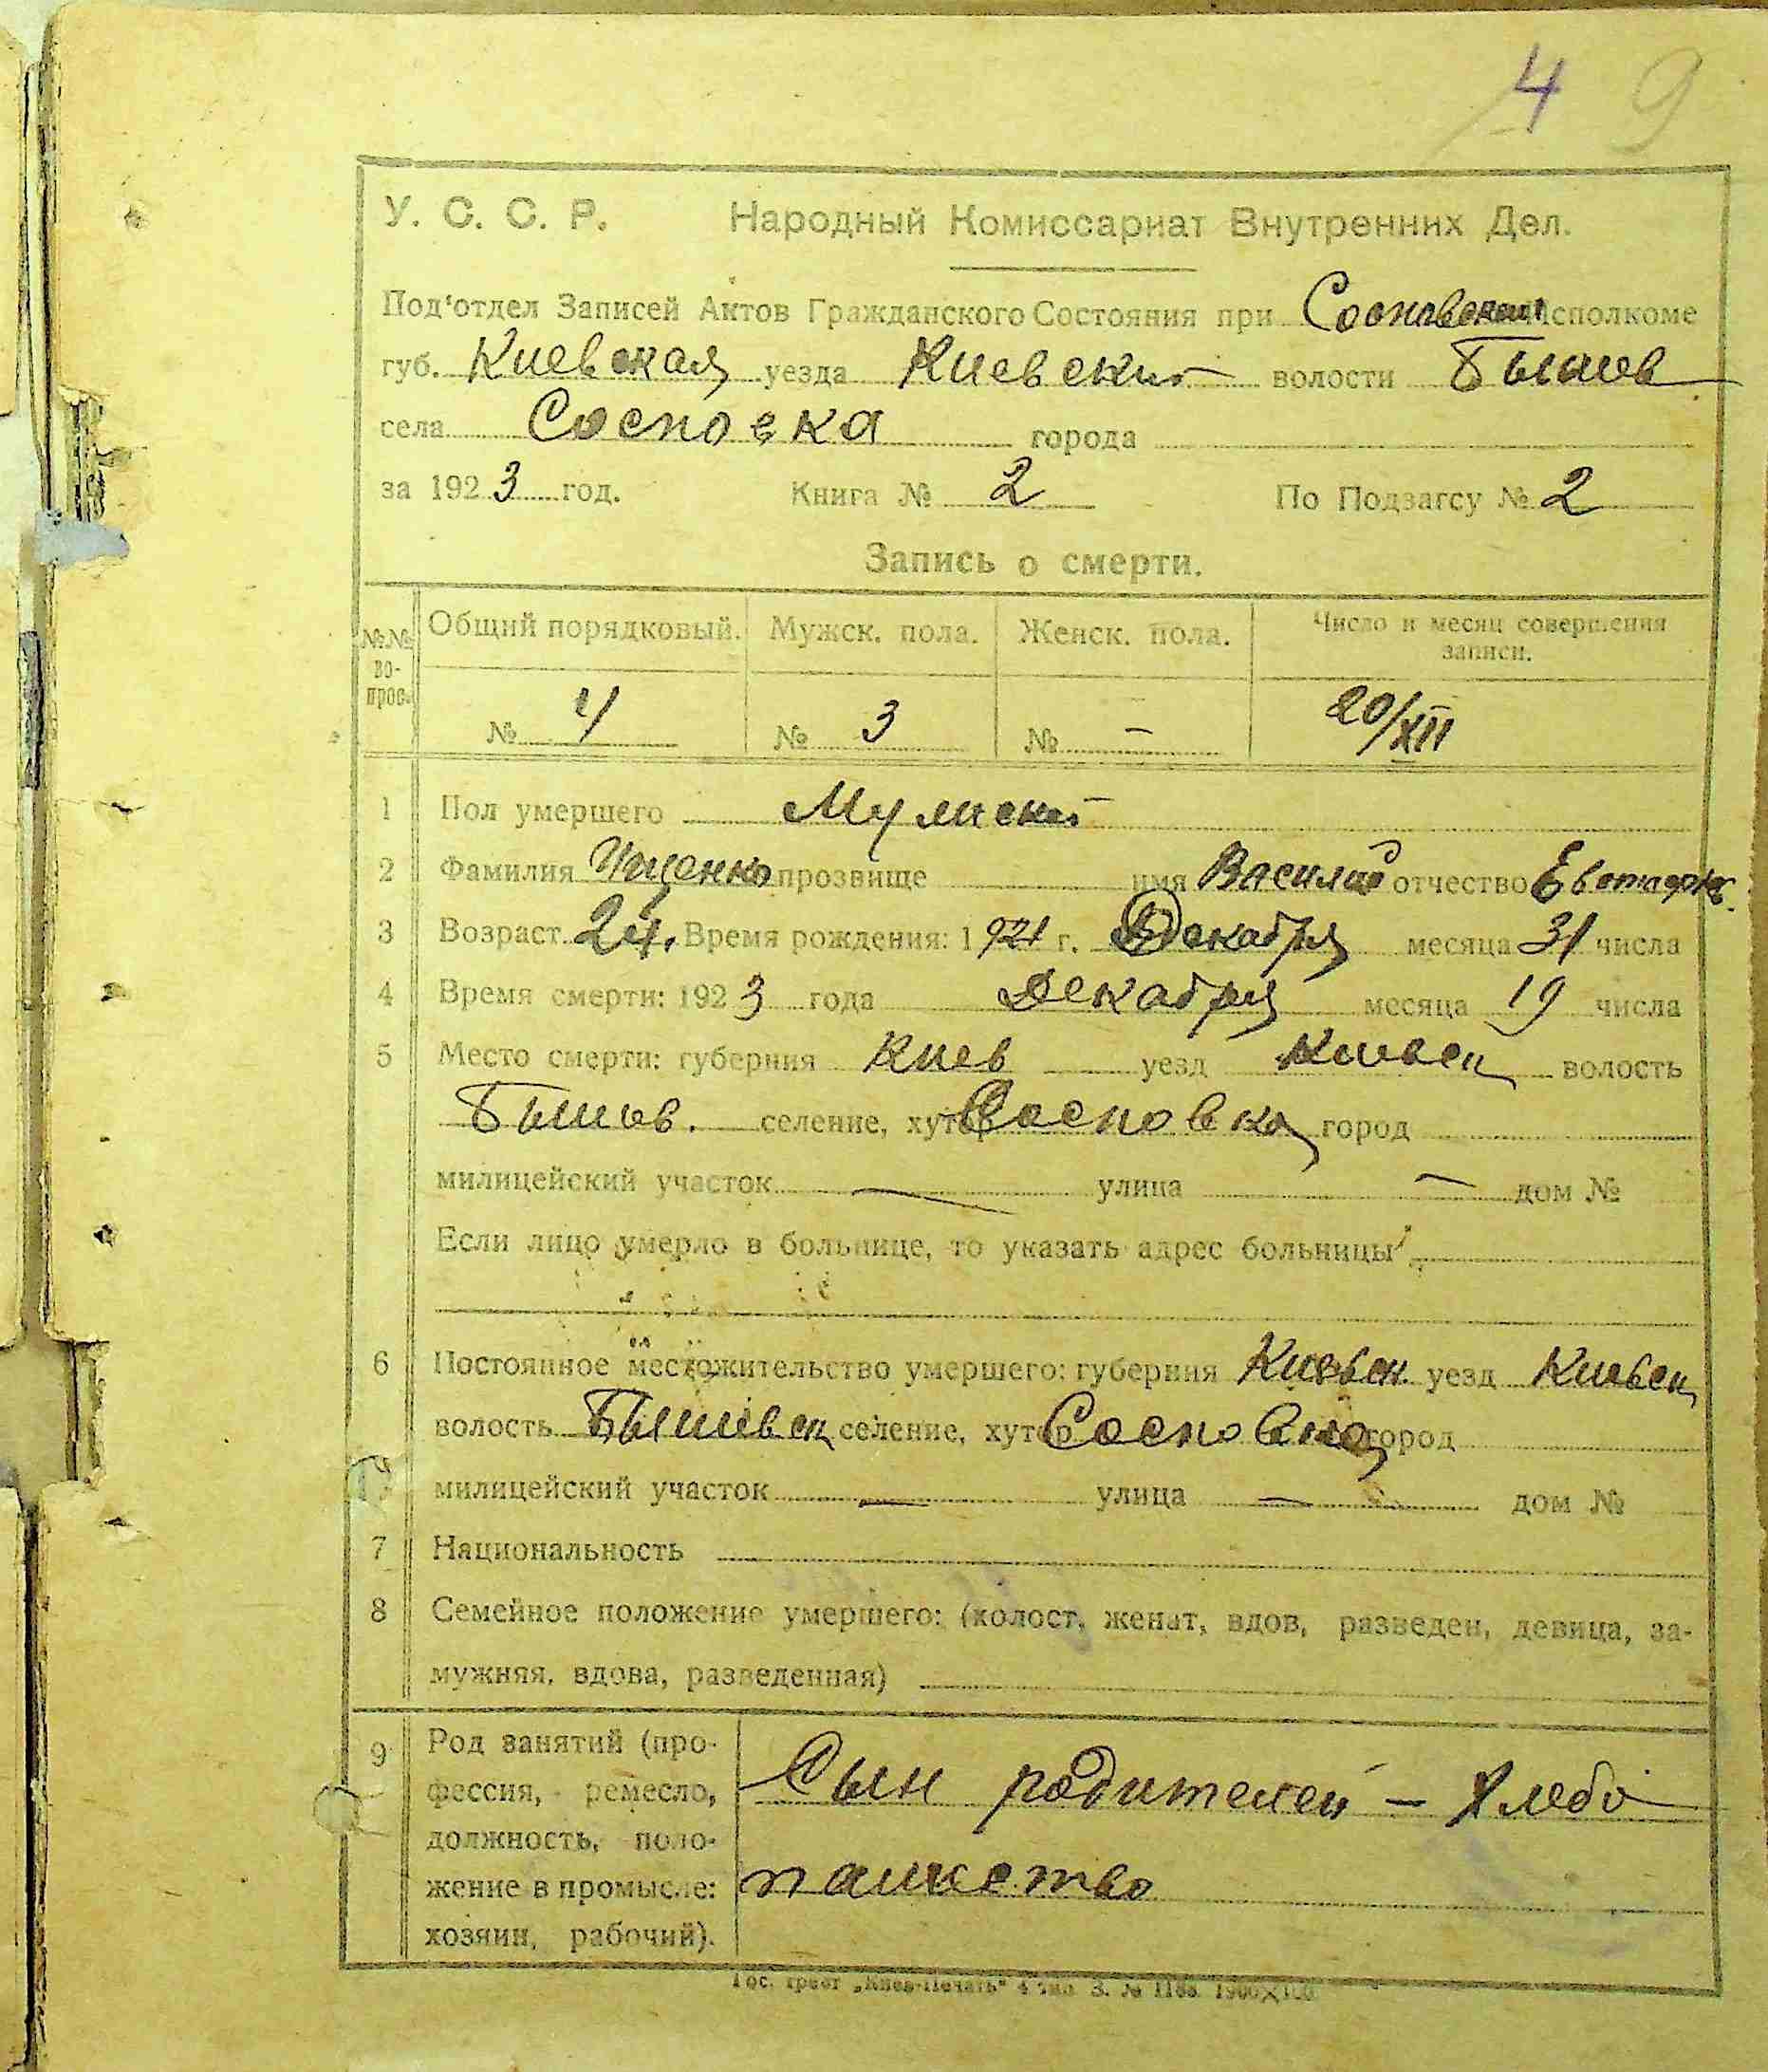 4 9
У. С. С. Р. Народный Комиссариат Внутренних Дел.
Под'отдел Записей Актов Гражданского Состояния при Сосновском Исполкоме
губ. Киевская уезда Киевский волости Бышев
села Сосновка города
за 1923 год. Книга № 2 По Подзагсу № 2
Запись о смерти.
№№ во-прос. Общий порядковый. Мужск. пола. Женск. пола. Число и месяц совершения записи.
№ 4 № 3 № – 20/XII
1 Пол умершего Мужской
2 Фамилия Ищенко прозвище имя Василий отчество
3 Возраст 2 Время рождения: 1921 г. Декабря месяца 31 числа
4 Время смерти: 1923 года Декабря месяца 19 числа
5 Место смерти: губерния Киев уезд Киевск волость
Бышев. селение, хутор Сосновка город
милицейский участок — улица — дом №
Если лицо умерло в больнице, то указать адрес больницы
6 Постоянное местожительство умершего: губерния Киевск. уезд Киевск
волость Бышевск селение, хутор Сосновка город
милицейский участок — улица — дом №
7 Национальность
8 Семейное положение умершего: (холост, женат, вдов, разведен, девица, за-
мужняя, вдова, разведенная)
9 Род занятий (про-
фессия, ремесло,
должность, поло-
жение в промысле:
хозяин, рабочий).
Сын родителей – Хлебо
пашество
Гос. трест „Киев-Печать" 4 тип. З. № 1188. 1900×100